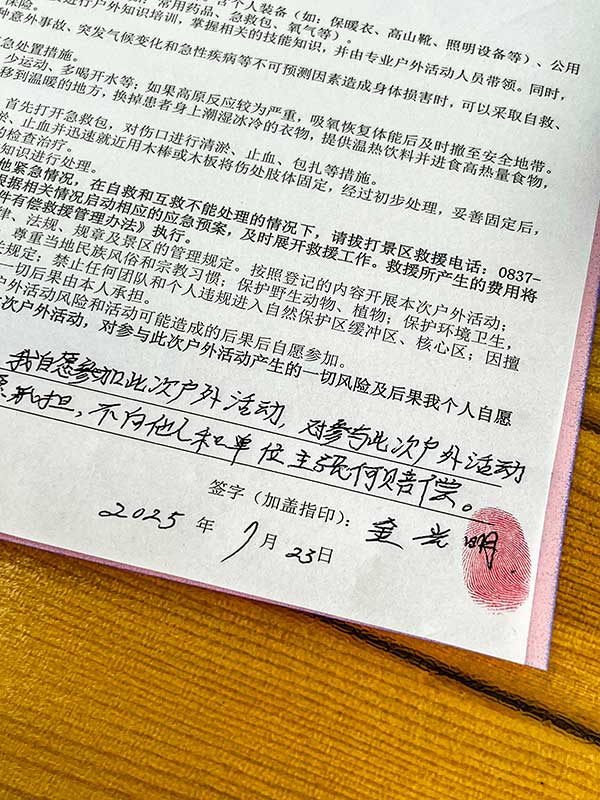 含个人装备(如:保暖衣、高山靴、照明设备等)、公用
常用药品、急救包、氧气等)。
进行户外知识培训,掌握相关的技能知识,并由专业户外活动人员带领。同时,
保险。
种意外事故、突发气候变化和急性疾病等不可预测因素造成身体损害时,可以采取自救、
急处置措施。
少运动、多喝开水等;如果高原反应较为严重,吸氧恢复体能后及时撤至安全地带。
移到温暖的地方,换掉患者身上潮湿冰冷的衣物,提供温热饮料并进食高热量食物,
首先打开急救包,对伤口进行清淤、止血、包扎等措施。
、止血并迅速就近用木棒或木板将伤处肢体固定,经过初步处理,妥善固定后,
的检查治疗。
知识进行处理。
他紧急情况,在自救和互救不能处理的情况下,请拔打景区救援电话:0837-
根据相关情况启动相应的应急预案,及时展开救援工作。救援所产生的费用将
件有偿救援管理办法》执行。
律、法规、规章及景区的管理规定。按照登记的内容开展本次户外活动;
尊重当地民族风俗和宗教习惯;保护野生动物、植物;保护环境卫生,
规定;禁止任何团队和个人违规进入自然保护区缓冲区、核心区;因擅
一切后果由本人承担。
户外活动风险和活动可能造成的后果后自愿参加。
次户外活动,对参与此次户外活动产生的一切风险及后果我个人自愿
我自愿参加此次户外活动,对参与此次户外活动
承担,不向他人和单位主张何赔偿。
签字(加盖指印):
光明
2025年9月23日